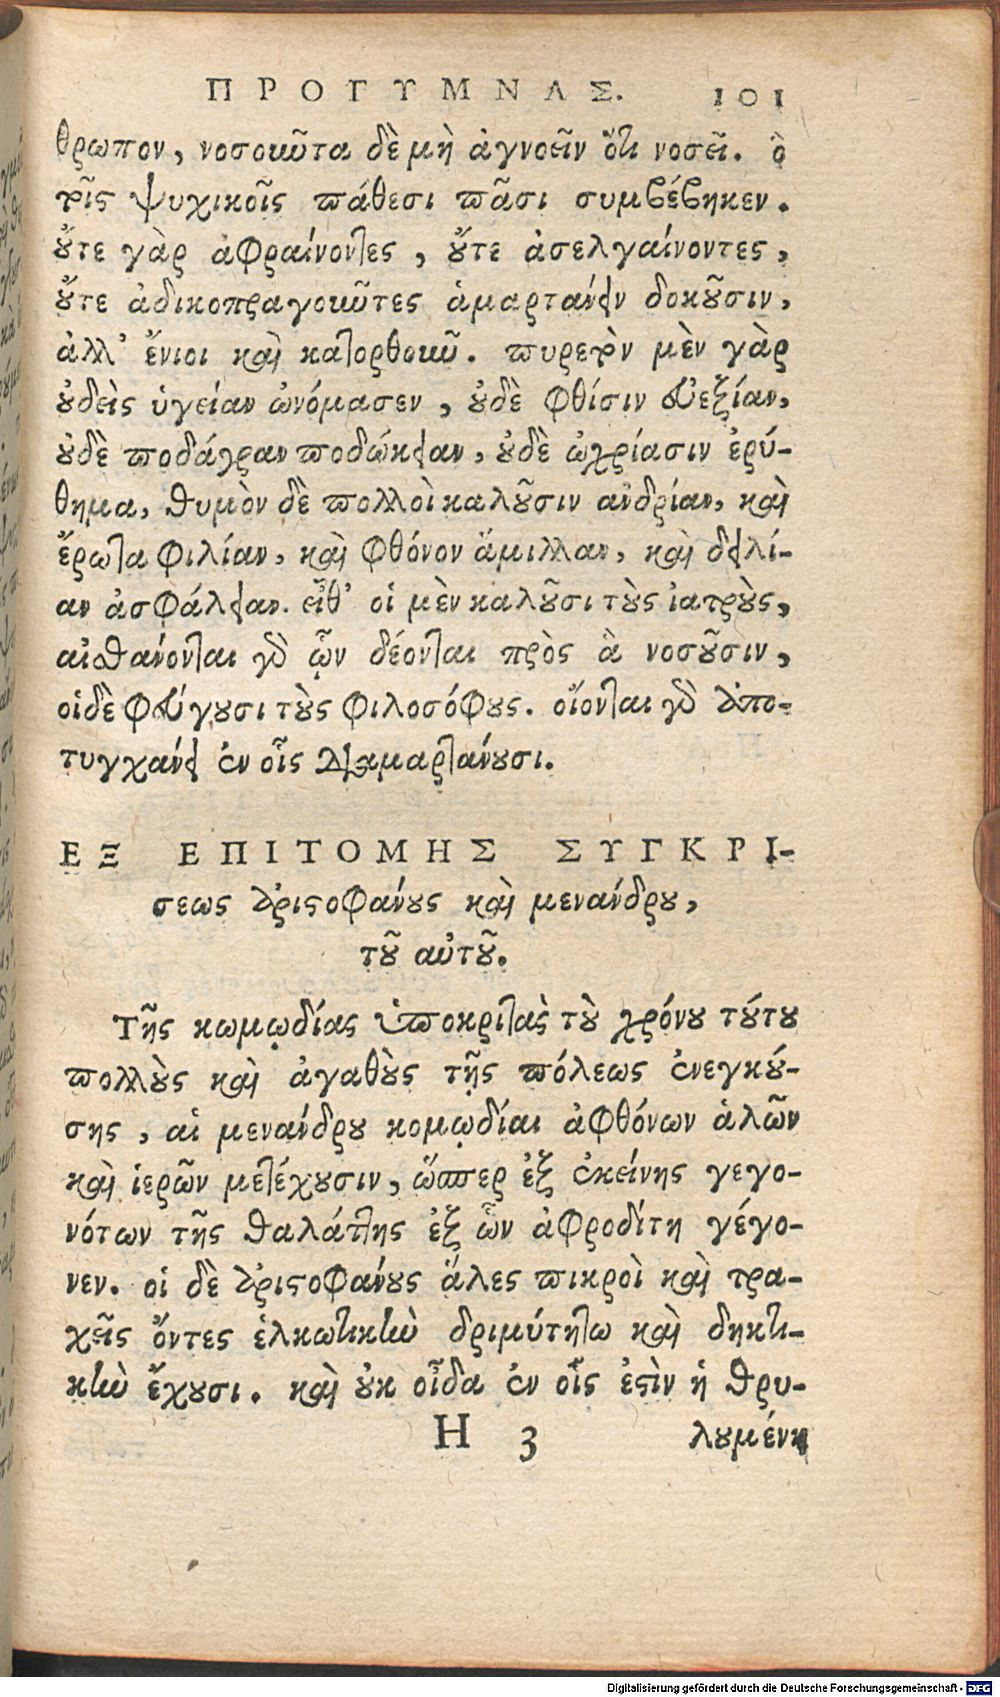 ΠΡΟΓΥΜΝΑΣ. 101
θρωπον, νοσοῦντα δὲ μὴ ἀγνοεῖν ὅτι νοσεῖ. ὃ
τοῖς ψυχικοῖς πάθεσι πᾶσι συμβέβηκεν.
οὔτε γὰρ ἀφραίνοντες, οὔτε ἀσελγαίνοντες,
οὔτε ἀδικοπραγοῦντες ἁμαρτάνειν δοκοῦσιν,
ἀλλ' ἔνιοι καὶ κατορθοῦν. πυρετὸν μὲν γὰρ
οὐδεὶς ὑγείαν ὠνόμασεν, οὐδὲ φθίσιν εὐεξίαν,
οὐδὲ ποδάγραν ποδώκειαν, οὐδὲ ὠχρίασιν ἐρύ-
θημα, θυμὸν δὲ πολλοὶ καλοῦσιν ἀνδρίαν, καὶ
ἔρωτα φιλίαν, καὶ φθόνον ἅμιλλαν, καὶ δειλί-
αν ἀσφάλειαν. εἶθ' οἱ μὲν καλοῦσι τοὺς ἰατροὺς,
αἰσθάνονται γὰρ ὧν δέονται πρὸς ἃ νοσοῦσιν,
οἱ δὲ φεύγουσι τοὺς φιλοσόφους. οἴονται γὰρ ἐπι-
τυγχάνειν ἐν οἷς διαμαρτάνουσι.
ΕΞ ΕΠΙΤΟΜΗΣ ΣΥΓΚΡΙ-
σεως ἀριστοφάνους καὶ μενάνδρου,
τοῦ αὐτοῦ.
Τῆς κωμῳδίας ὑποκριτὰς τοὺ χρόνου τούτου
πολλοὺς καὶ ἀγαθοὺς τῆς πόλεως ἐνεγκού-
σης, αἱ μενάνδρου κομῳδίαι ἀφθόνων ἁλῶν
καὶ ἱερῶν μετέχουσιν, ὥσπερ ἐξ ἐκείνης γεγο-
νότων τῆς θαλάττης ἐξ ὧν ἀφροδίτη γέγο-
νεν. οἱ δὲ ἀριστοφάνους ἅλες πικροὶ καὶ τρα-
χεῖς ὄντες ἑλκωτικὴν δριμύτητα καὶ δηκτι-
κὴν ἔχουσι. καὶ οὐκ οἶδα ἐν οἷς ἐστὶν ἡ θρυ-
H 3 λουμένη
Digitalisierung gefördert durch die Deutsche Forschungsgemeinschaft - DFG